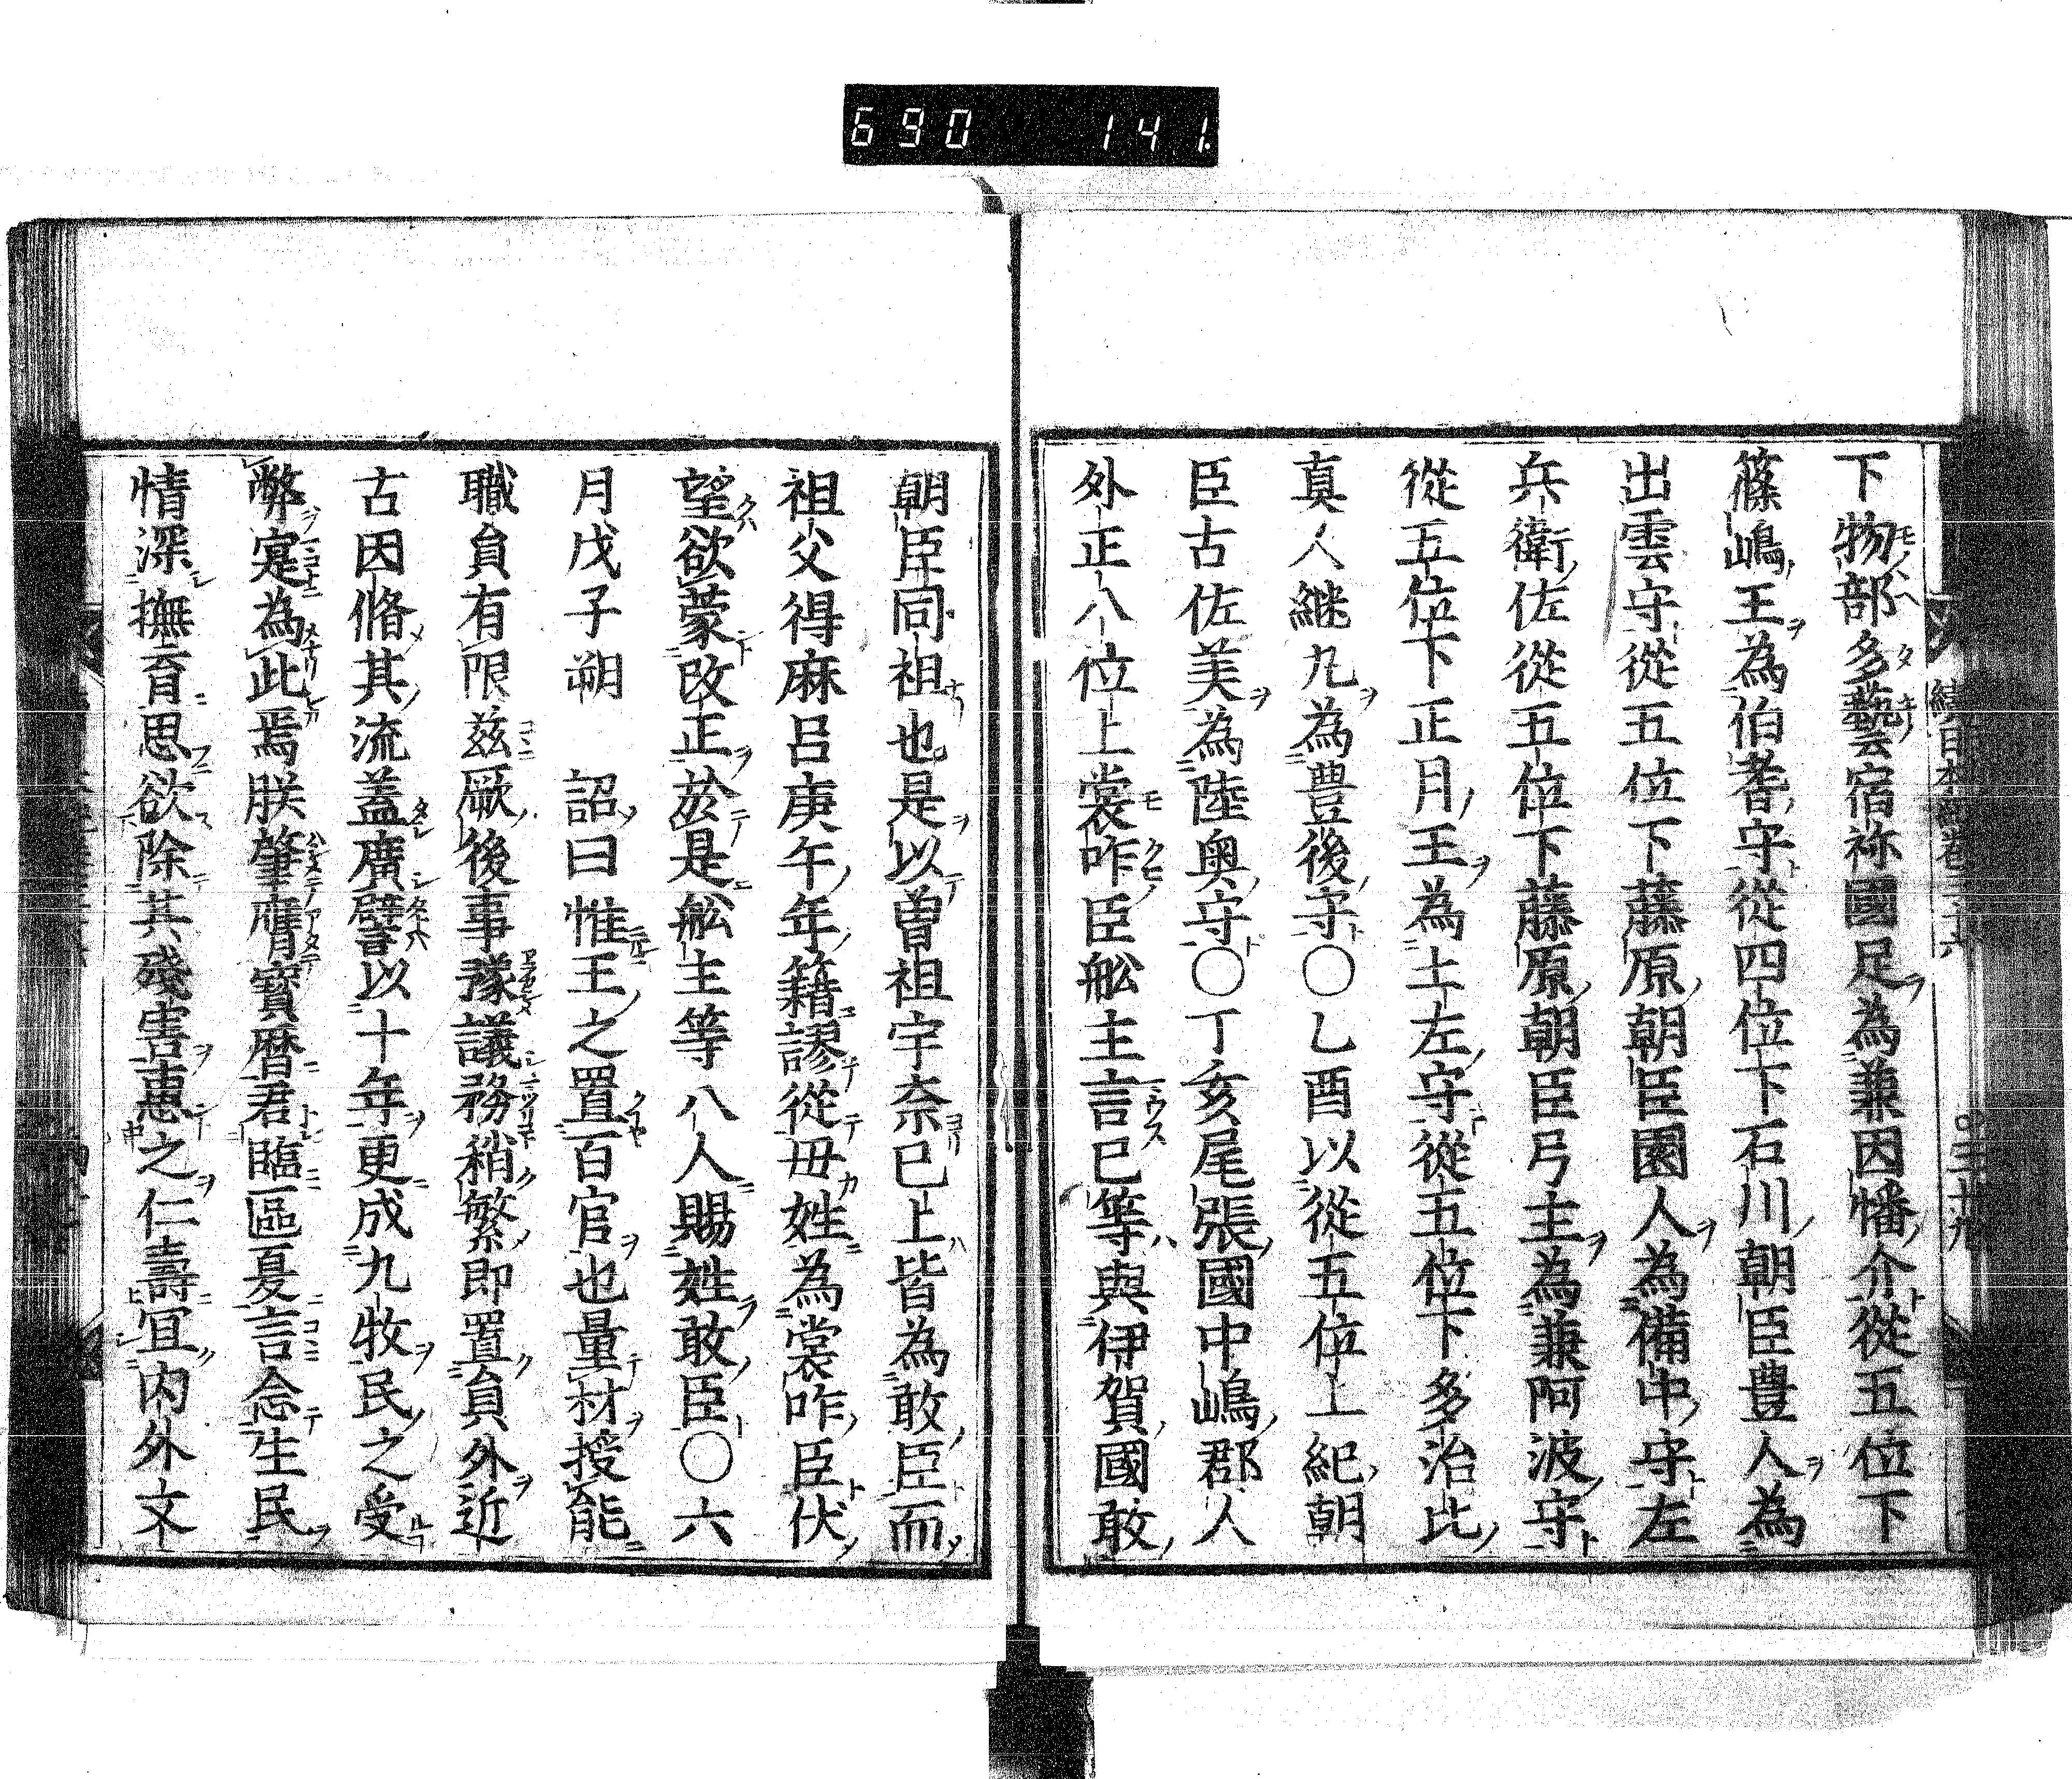 690 141.
下物部多藝宿祢國足為兼因幡介從五位下
篠嶋王為伯耆守從四位下石川朝臣豊人為
出雲守從五位下藤原朝臣園人為備中守左
兵衛佐從五位下藤原朝臣弓主為兼阿波守
從五位下正月王為土左守從五位下多治比
真人継丸為豊後守〇乙酉以從五位上紀朝
臣古佐美為陸奥守〇丁亥尾張國中嶋郡人
外正八位上裳咋臣舩主言已等與伊賀國敢
朝臣同祖也是以曽祖宇奈已上皆為敢臣而
祖父得麻呂庚午年籍謬從毋姓為裳咋臣伏
望欲蒙改正於是舩主等八人賜姓敢臣〇六
月戊子朔 詔曰惟王之置百官也量材授能
職負有限兹厥後事豫議務稍繁即置負外近
古因脩其流蓋廣譬以十年更成九牧民之受
弊寔為此焉朕肇膺寳暦君臨區夏言念生民
情深撫育思欲除其殘害惠之仁壽冝内外文